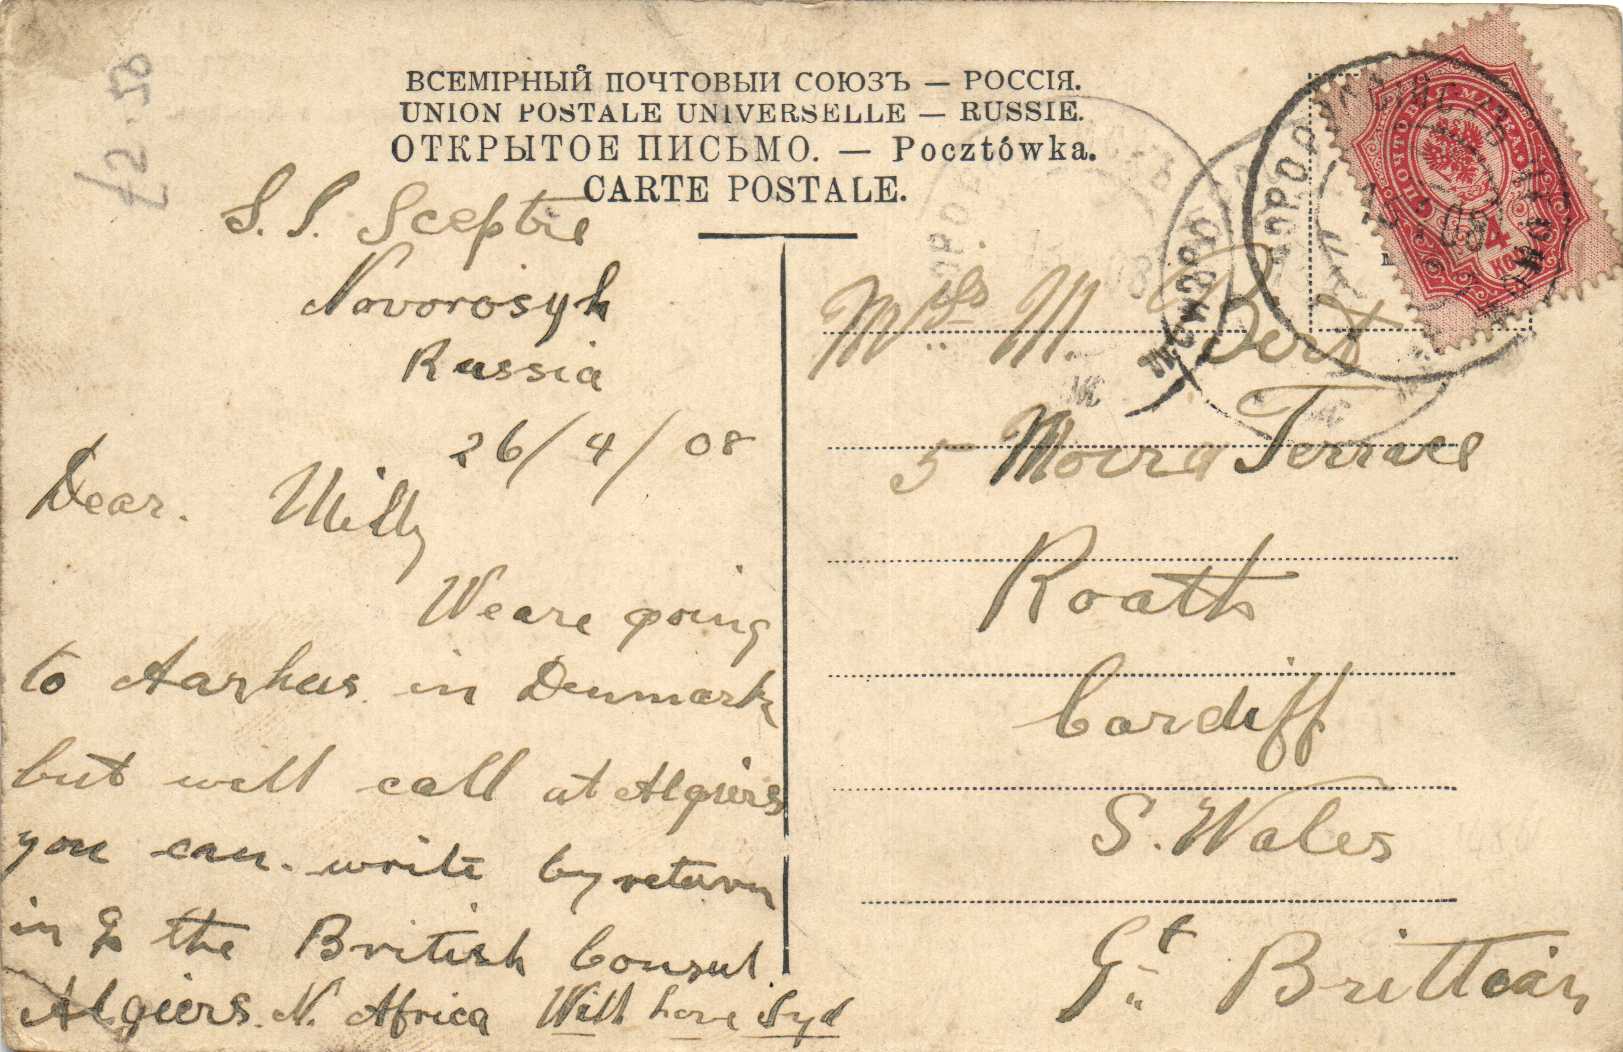 £2-50
ВСЕМІРНЫЙ ПОЧТОВЫИ СОЮЗЪ — РОССІЯ.
UNION POSTALE UNIVERSELLE — RUSSIE.
ОТКРЫТОЕ ПИСЬМО. — Pocztówka.
CARTE POSTALE.
S. S. Sceptre
Novorosyk
Russia
26/4/08
Dear. Milly
We are going
to Aarhus in Denmark
but will call at Algiers
you can. write by return
in the British Consul.
Algiers. N. Africa Will have Syd
Mrs M. Bert
5 Moira Terrace
Roath
Cardiff
S. Wales
Gt Brittain
4